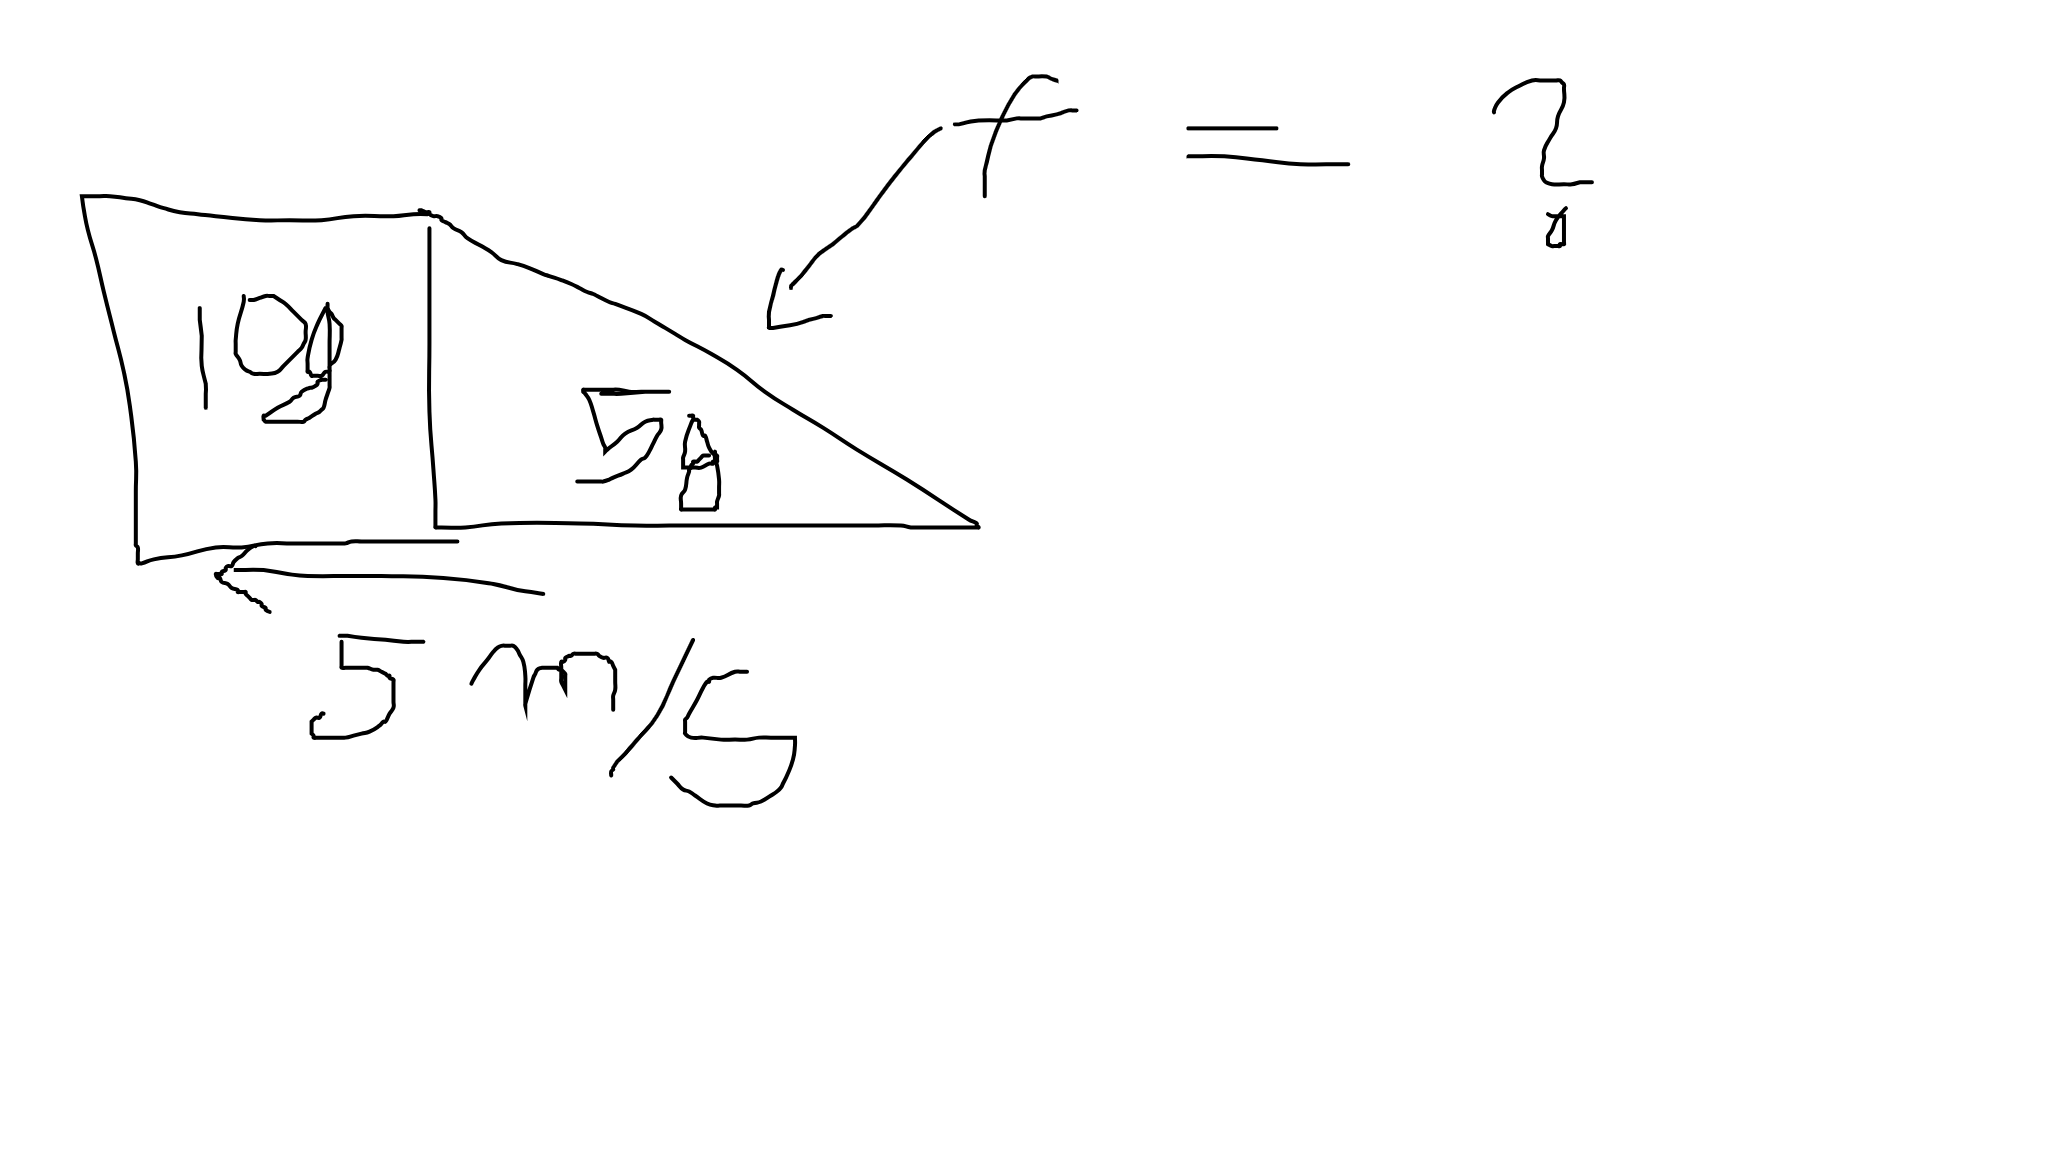 f = ?
10g
5g
5 m/s